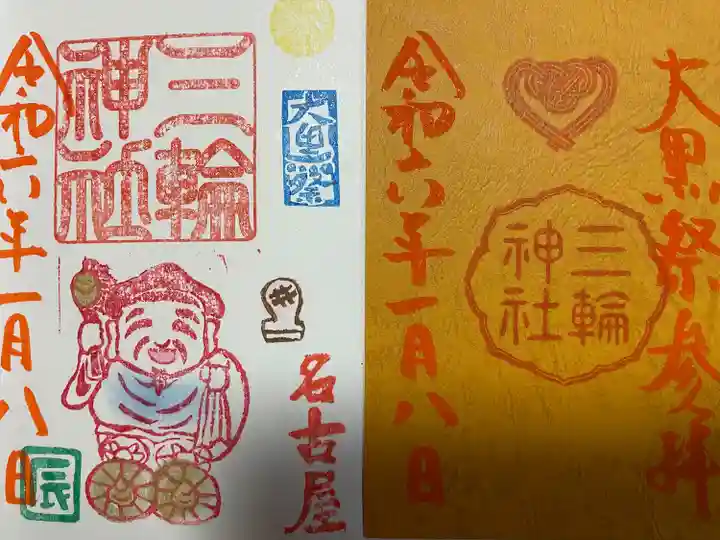 三輪
神社
大黒祭
名古屋
令和六年一月八日
辰
大黒祭参拝
三輪
神社
令和六年一月八日